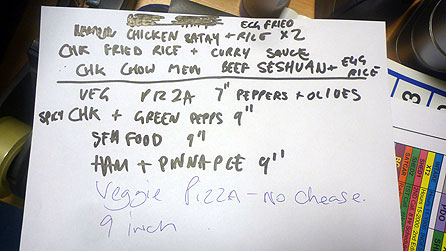 EGG FRIED
CHICKEN SATAY + RICE X2
CHK FRIED RICE + CURRY SAUCE
CHK CHOW MEN BEEF SESHUAN + EGG RICE
VEG PIZZA 7" PEPPERS + OLIVES
SPICY CHK + GREEN PEPPS 9"
SEA FOOD 9"
HAM + PINNAPLE 9"
Veggie PIZZA - NO chease.
9 inch
3